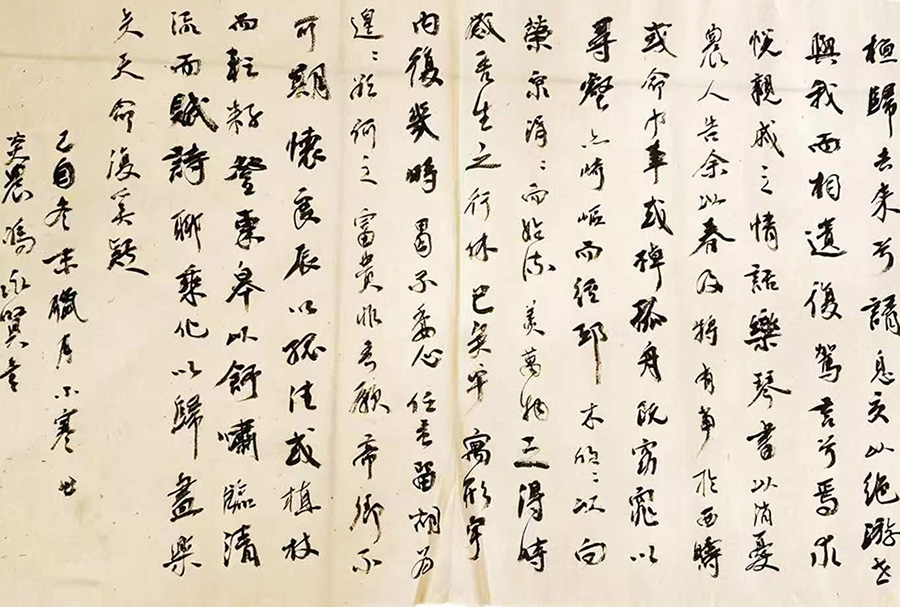 桓歸去来兮請息交以絕游世
與我而相遺復駕言兮焉求
悅親戚之情話樂琴書以消憂
農人告余以春及將有事於西疇
或命巾車或棹孤舟既窈窕以
尋壑亦崎嶇而經邱木欣〻以向
榮泉涓〻而始流羨萬物之得時
感吾生之行休已矣乎寓形宇
内復幾時曷不委心任去留胡為
遑〻欲何之富貴非吾願帝鄉不
可期懷良辰以孤往或植杖
而耘耔登東皋以舒嘯臨清
流而賦詩聊乘化以歸盡樂
夫天命復奚疑
冬末臘月小寒
農馮永書